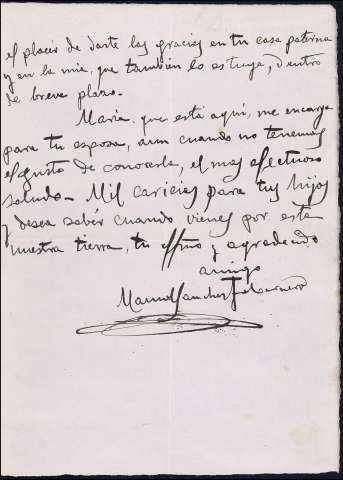 el placer de darte las gracias en tu casa paterna
y en la mia, que también lo es tuya, dentro
de breve plazo.
María que está aquí, me encarga
para tu esposa, aun cuando no tenemos
el gusto de conocerla, el mas afectuoso
saludo. Mil caricias para tus hijos
y desea saber cuando vienes por esta
nuestra tierra, tu affmo y agradecido
amigo
Manuel Sanchez